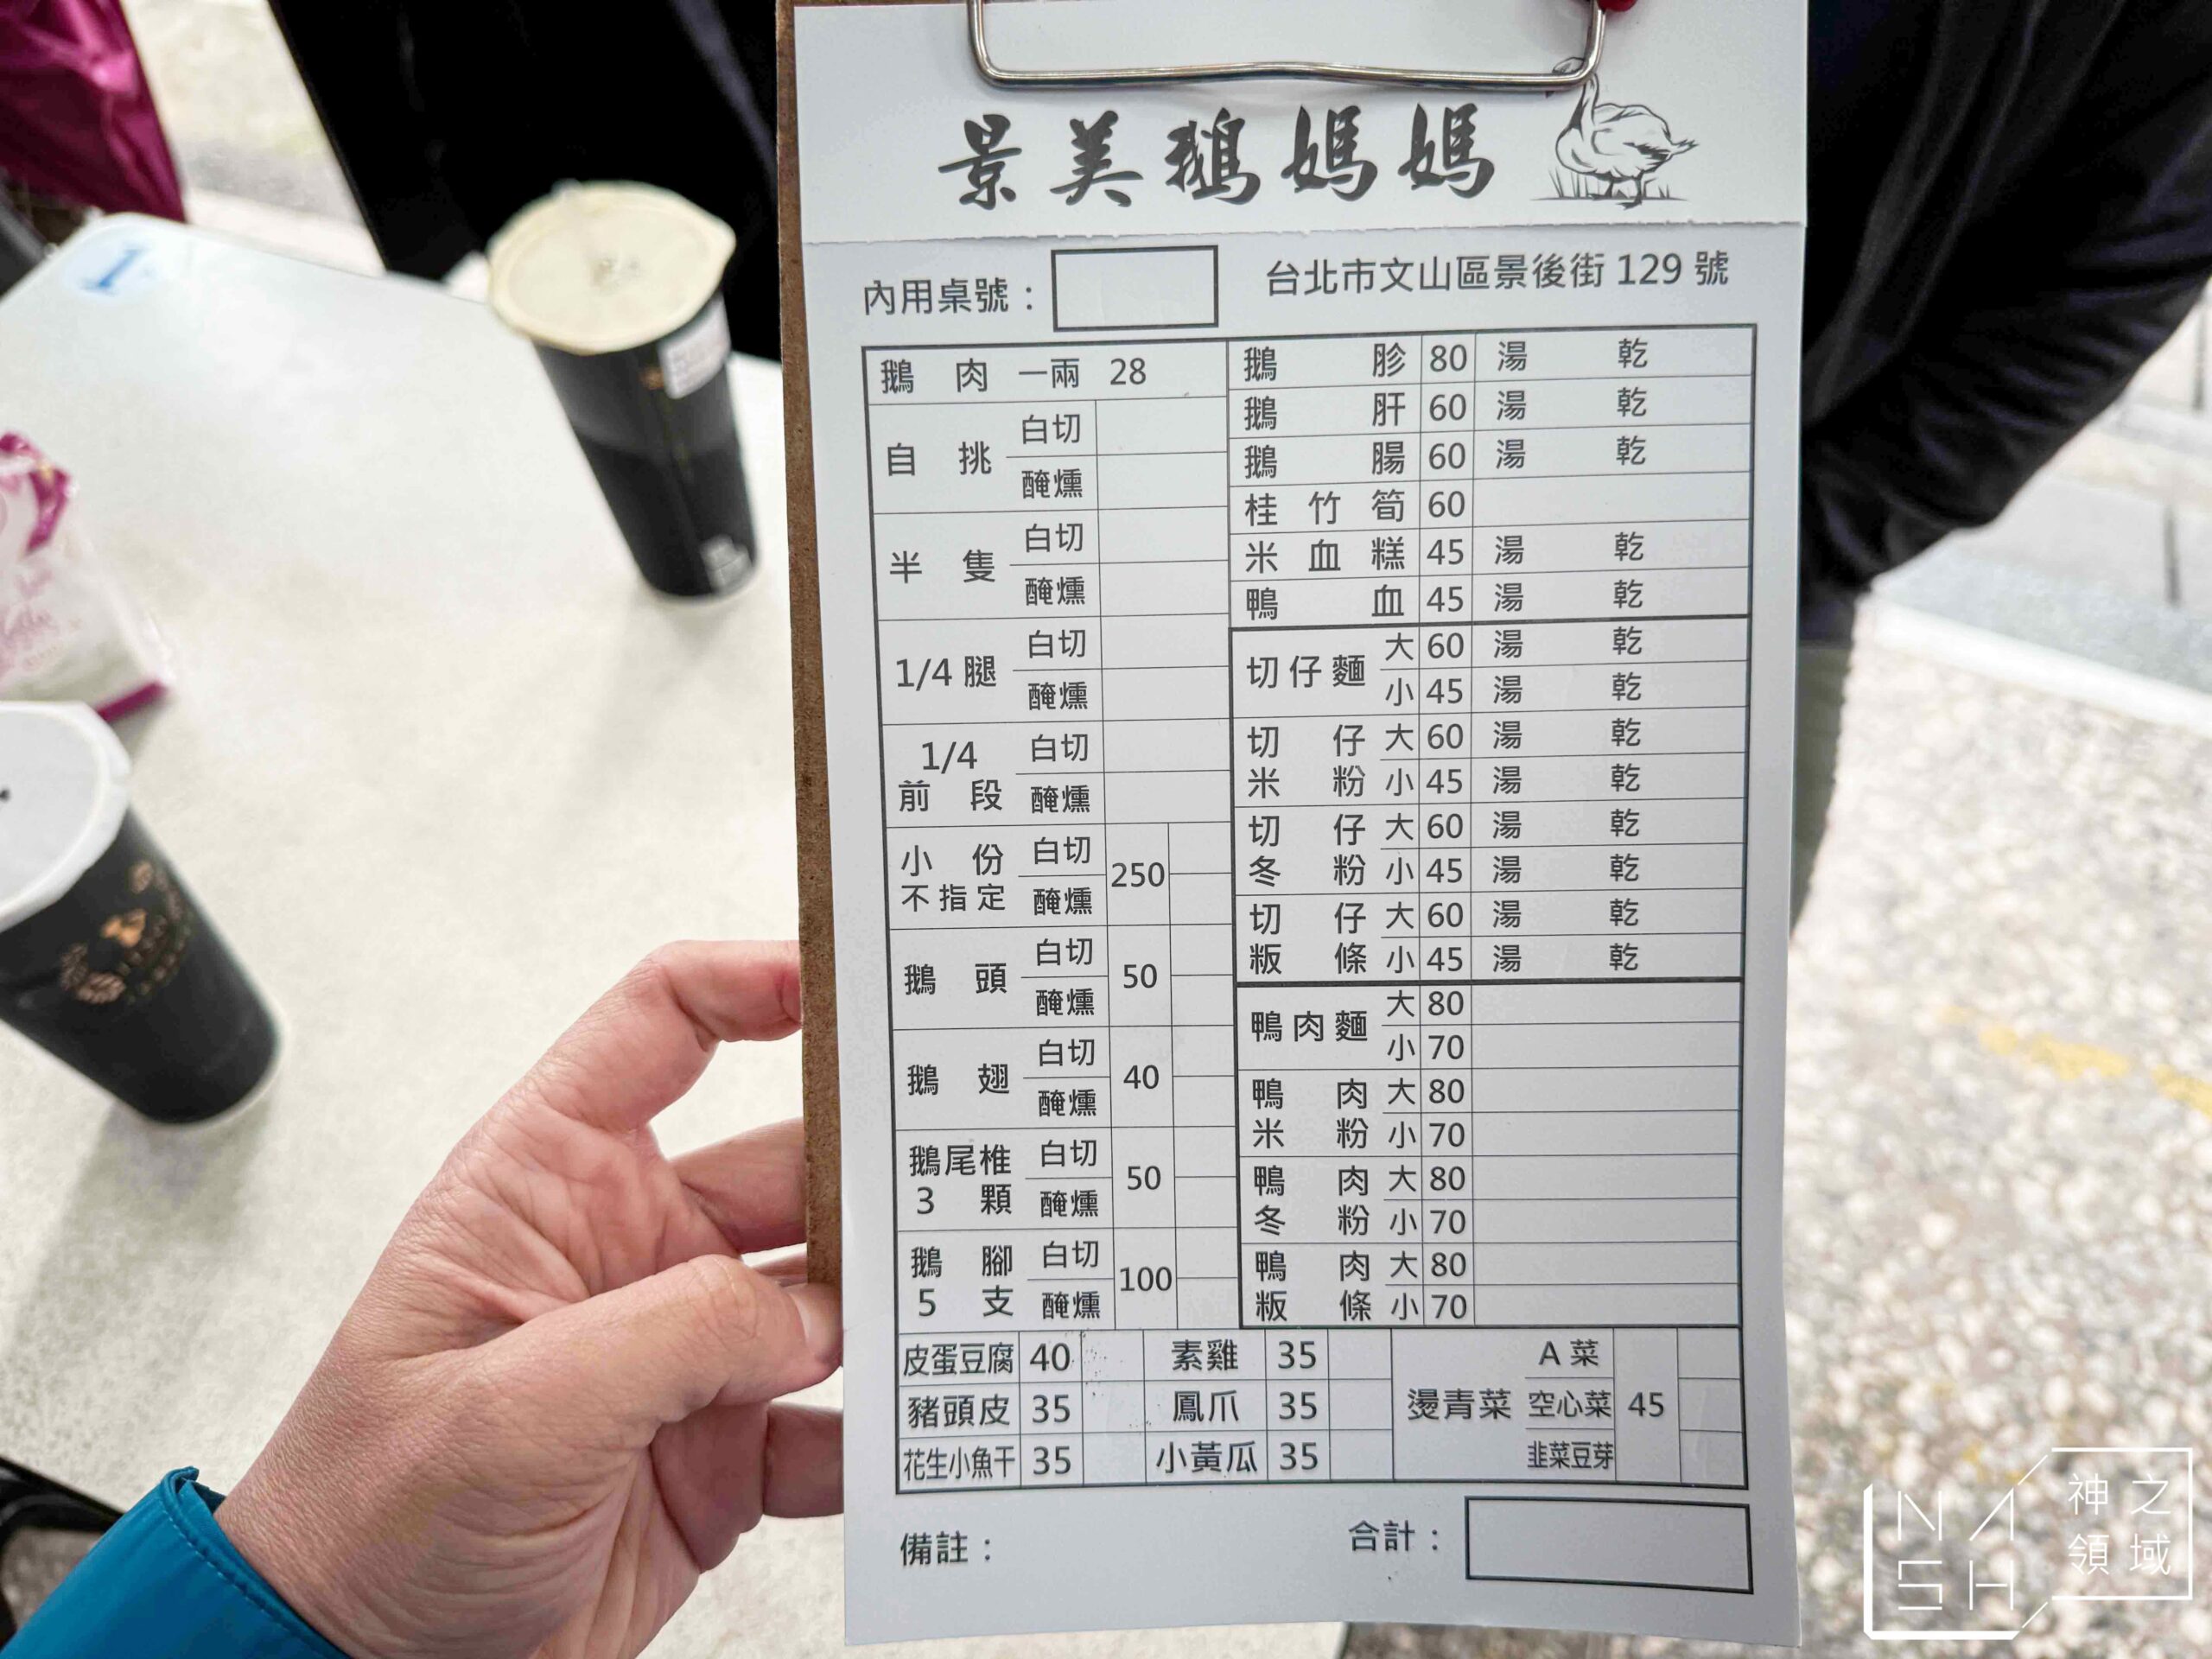 景美鵝媽媽
內用桌號：
台北市文山區景後街 129 號
鵝肉 一兩 28
自挑 白切
醃燻
半隻 白切
醃燻
1/4 腿 白切
醃燻
1/4 前段 白切
醃燻
小份 不指定 白切 250
醃燻
鵝頭 白切 50
醃燻
鵝翅 白切 40
醃燻
鵝尾椎 3 顆 白切 50
醃燻
鵝腳 5 支 白切 100
醃燻
鵝胗 80 湯 乾
鵝肝 60 湯 乾
鵝腸 60 湯 乾
桂竹筍 60
米血糕 45 湯 乾
鴨血 45 湯 乾
切仔麵 大 60 湯 乾
小 45 湯 乾
切仔米粉 大 60 湯 乾
小 45 湯 乾
切仔冬粉 大 60 湯 乾
小 45 湯 乾
切仔粄條 大 60 湯 乾
小 45 湯 乾
鴨肉麵 大 80
小 70
鴨肉米粉 大 80
小 70
鴨肉冬粉 大 80
小 70
鴨肉粄條 大 80
小 70
皮蛋豆腐 40 素雞 35
豬頭皮 35 鳳爪 35
花生小魚干 35 小黃瓜 35
燙青菜 A 菜 45
空心菜
韭菜豆芽
備註：
合計：
1
NASH
神之領域